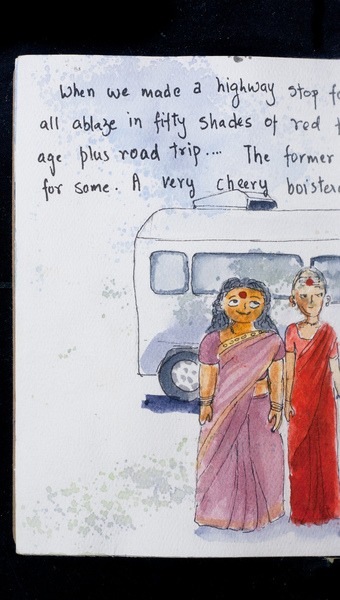 When we made a highway stop
all ablaze in fifty shades of red
age plus road trip.... The former
for some. A very cheery